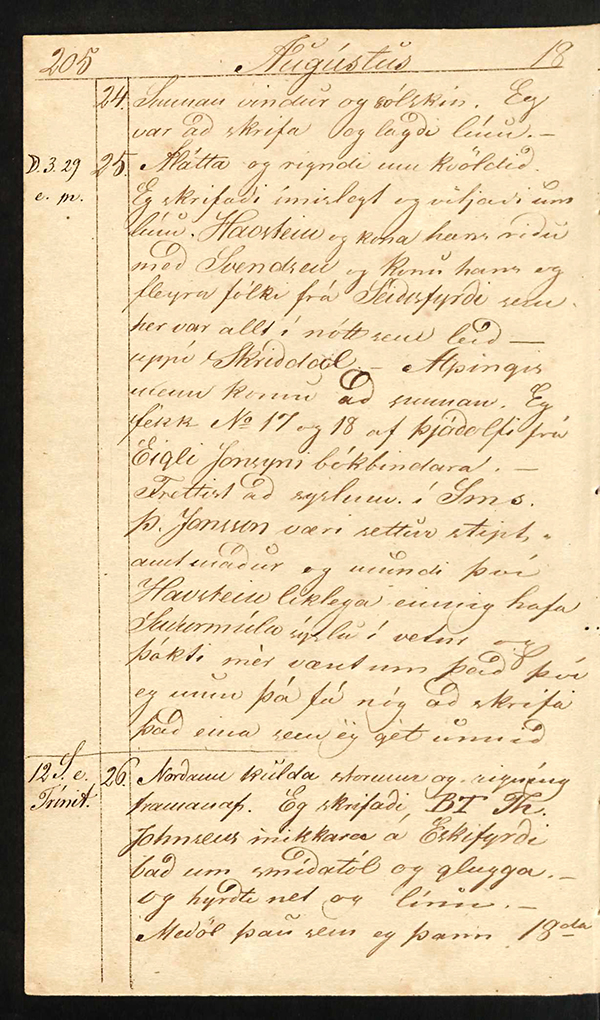 205 Augústus 18
24. Sunnan vindur og sólskin. Eg
var ad skrifa og lagdi línu. –
D. 3. 29 25. Áátta og rigndi um kvöldid.
e. m. Eg skrifadi ímislegt og vitjadi um
línu. Havstein og kona hans ridu
med Svendsen og konu hans og
fleyra fólki frá Seidisfyrdi sem
her var allt í nótt sem leid –
uppí Skriddal. – Alþingis
menn komu ad sunnan. Eg
fékk No 17 og 18 af þjódolfi frá
Eigli Jonssyni bókbindara. –
Frettist ad syslum. í Sms.
þ. Jonsson væri settur stipt-
amtmadur og mundi því
Havstein liklega einnig hafa
Sudurmúla sýslu í vetur og
þókti mér vænt um þad því
eg mun þá fá nóg ad skrifa
þad eina sem eg get unnid
12 S. e. 26. Nordann kulda stormur og rigníng
Trinit. framanaf. Eg skrifadi, BT Th.
Johnsens á Eskifyrdi
bad um smídatól og glugga. –
og hyrdti net og línu. –
Medöl þau sem eg þann 18da